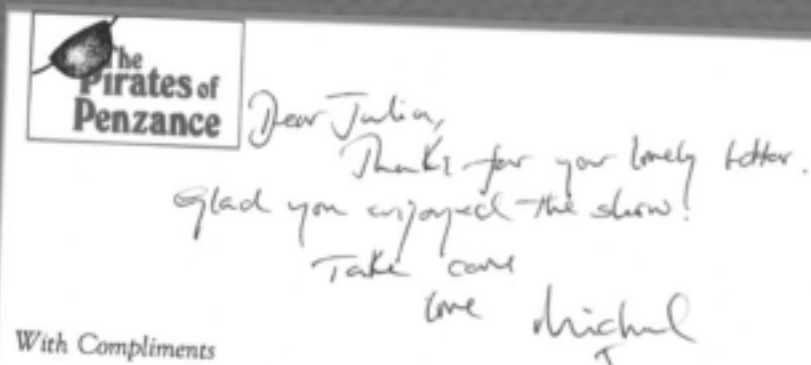 The
Pirates of
Penzance
Dear Julia,
Thanks for your lovely letter.
Glad you enjoyed the show!
Take care
love Michael
With Compliments